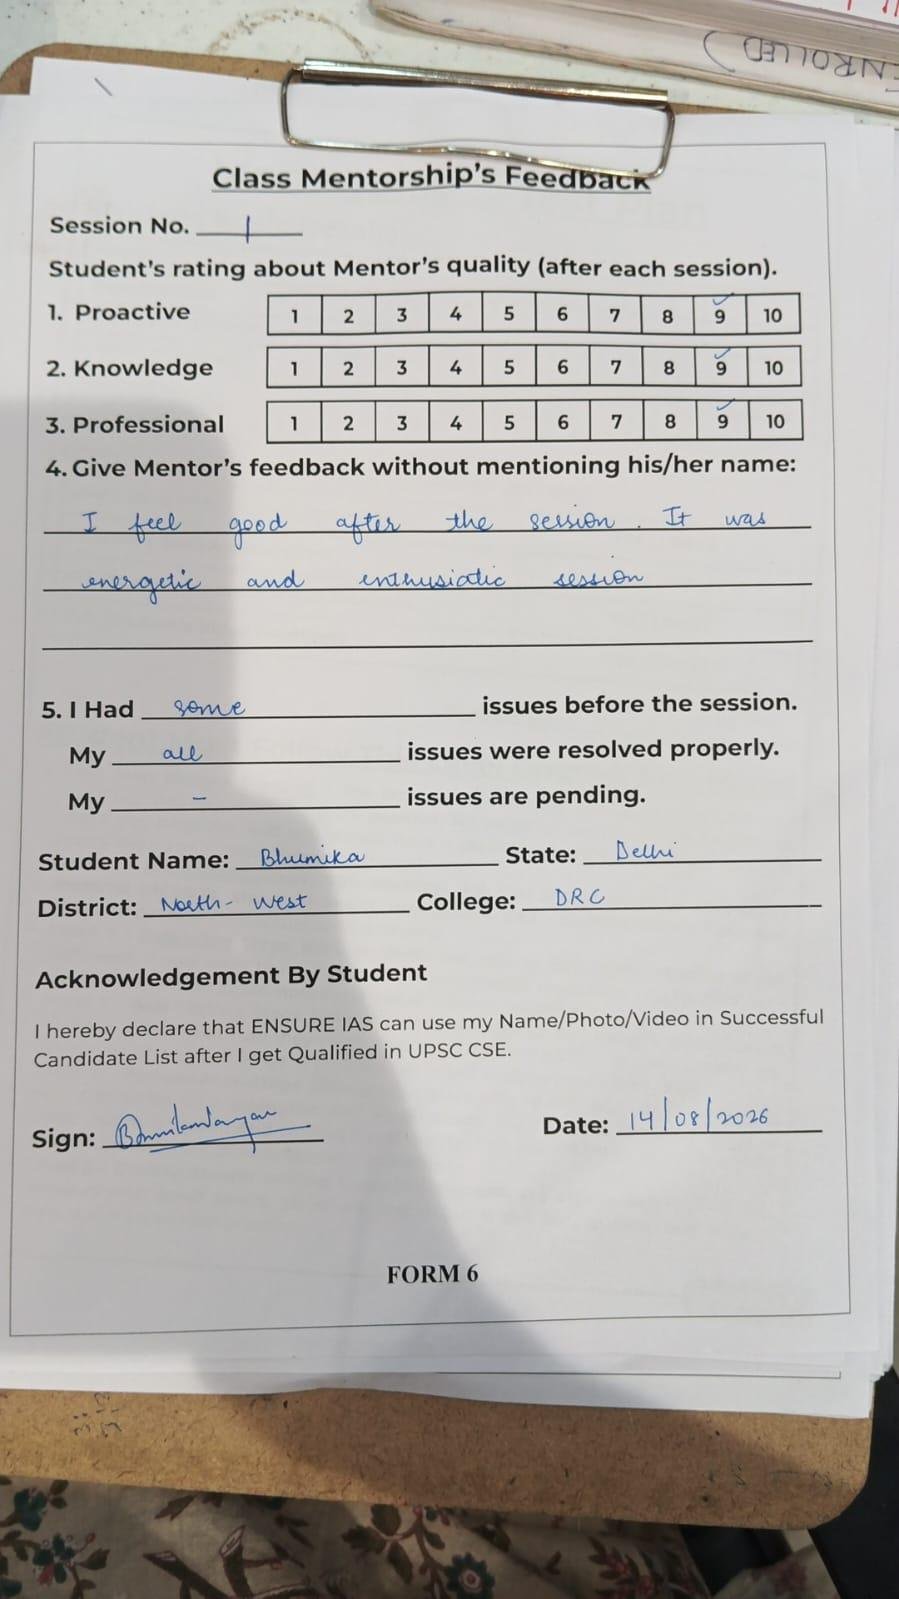 ENROLLED)
Class Mentorship's Feedback
Session No. 1
Student's rating about Mentor's quality (after each session).
1. Proactive 1 2 3 4 5 6 7 8 9 10
2. Knowledge 1 2 3 4 5 6 7 8 9 10
3. Professional 1 2 3 4 5 6 7 8 9 10
4. Give Mentor's feedback without mentioning his/her name:
I feel good after the session. It was
energetic and enthusiatic session
5. I Had some issues before the session.
My all issues were resolved properly.
My - issues are pending.
Student Name: Bhumika State: Delhi
District: North-West College: DRC
Acknowledgement By Student
I hereby declare that ENSURE IAS can use my Name/Photo/Video in Successful
Candidate List after I get Qualified in UPSC CSE.
Sign: Date: 14/08/2026
FORM 6